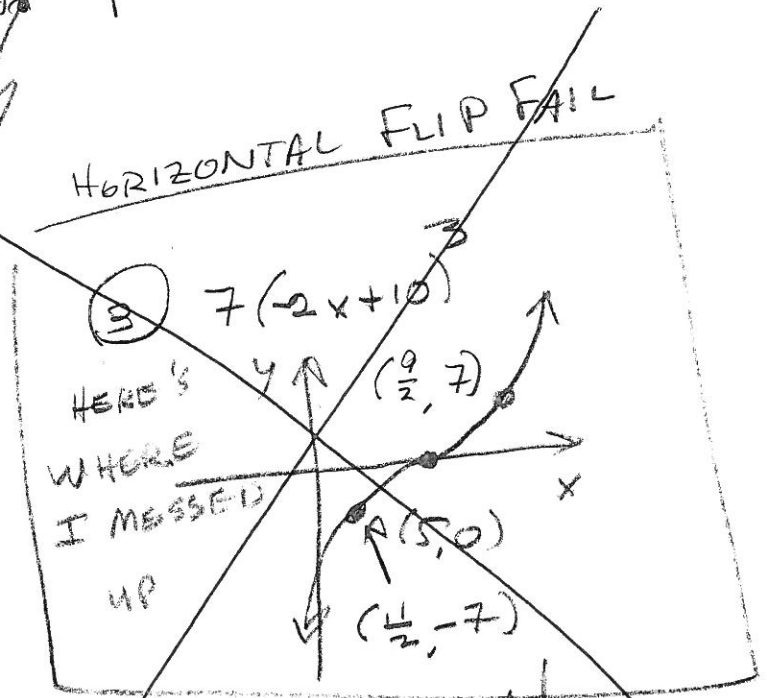 HORIZONTAL FLIP FAIL
3 7(-2x+10)³
HERE'S
WHERE
I MESSED
UP
y
(9/2, 7)
x
(5,0)
(11/2, -7)